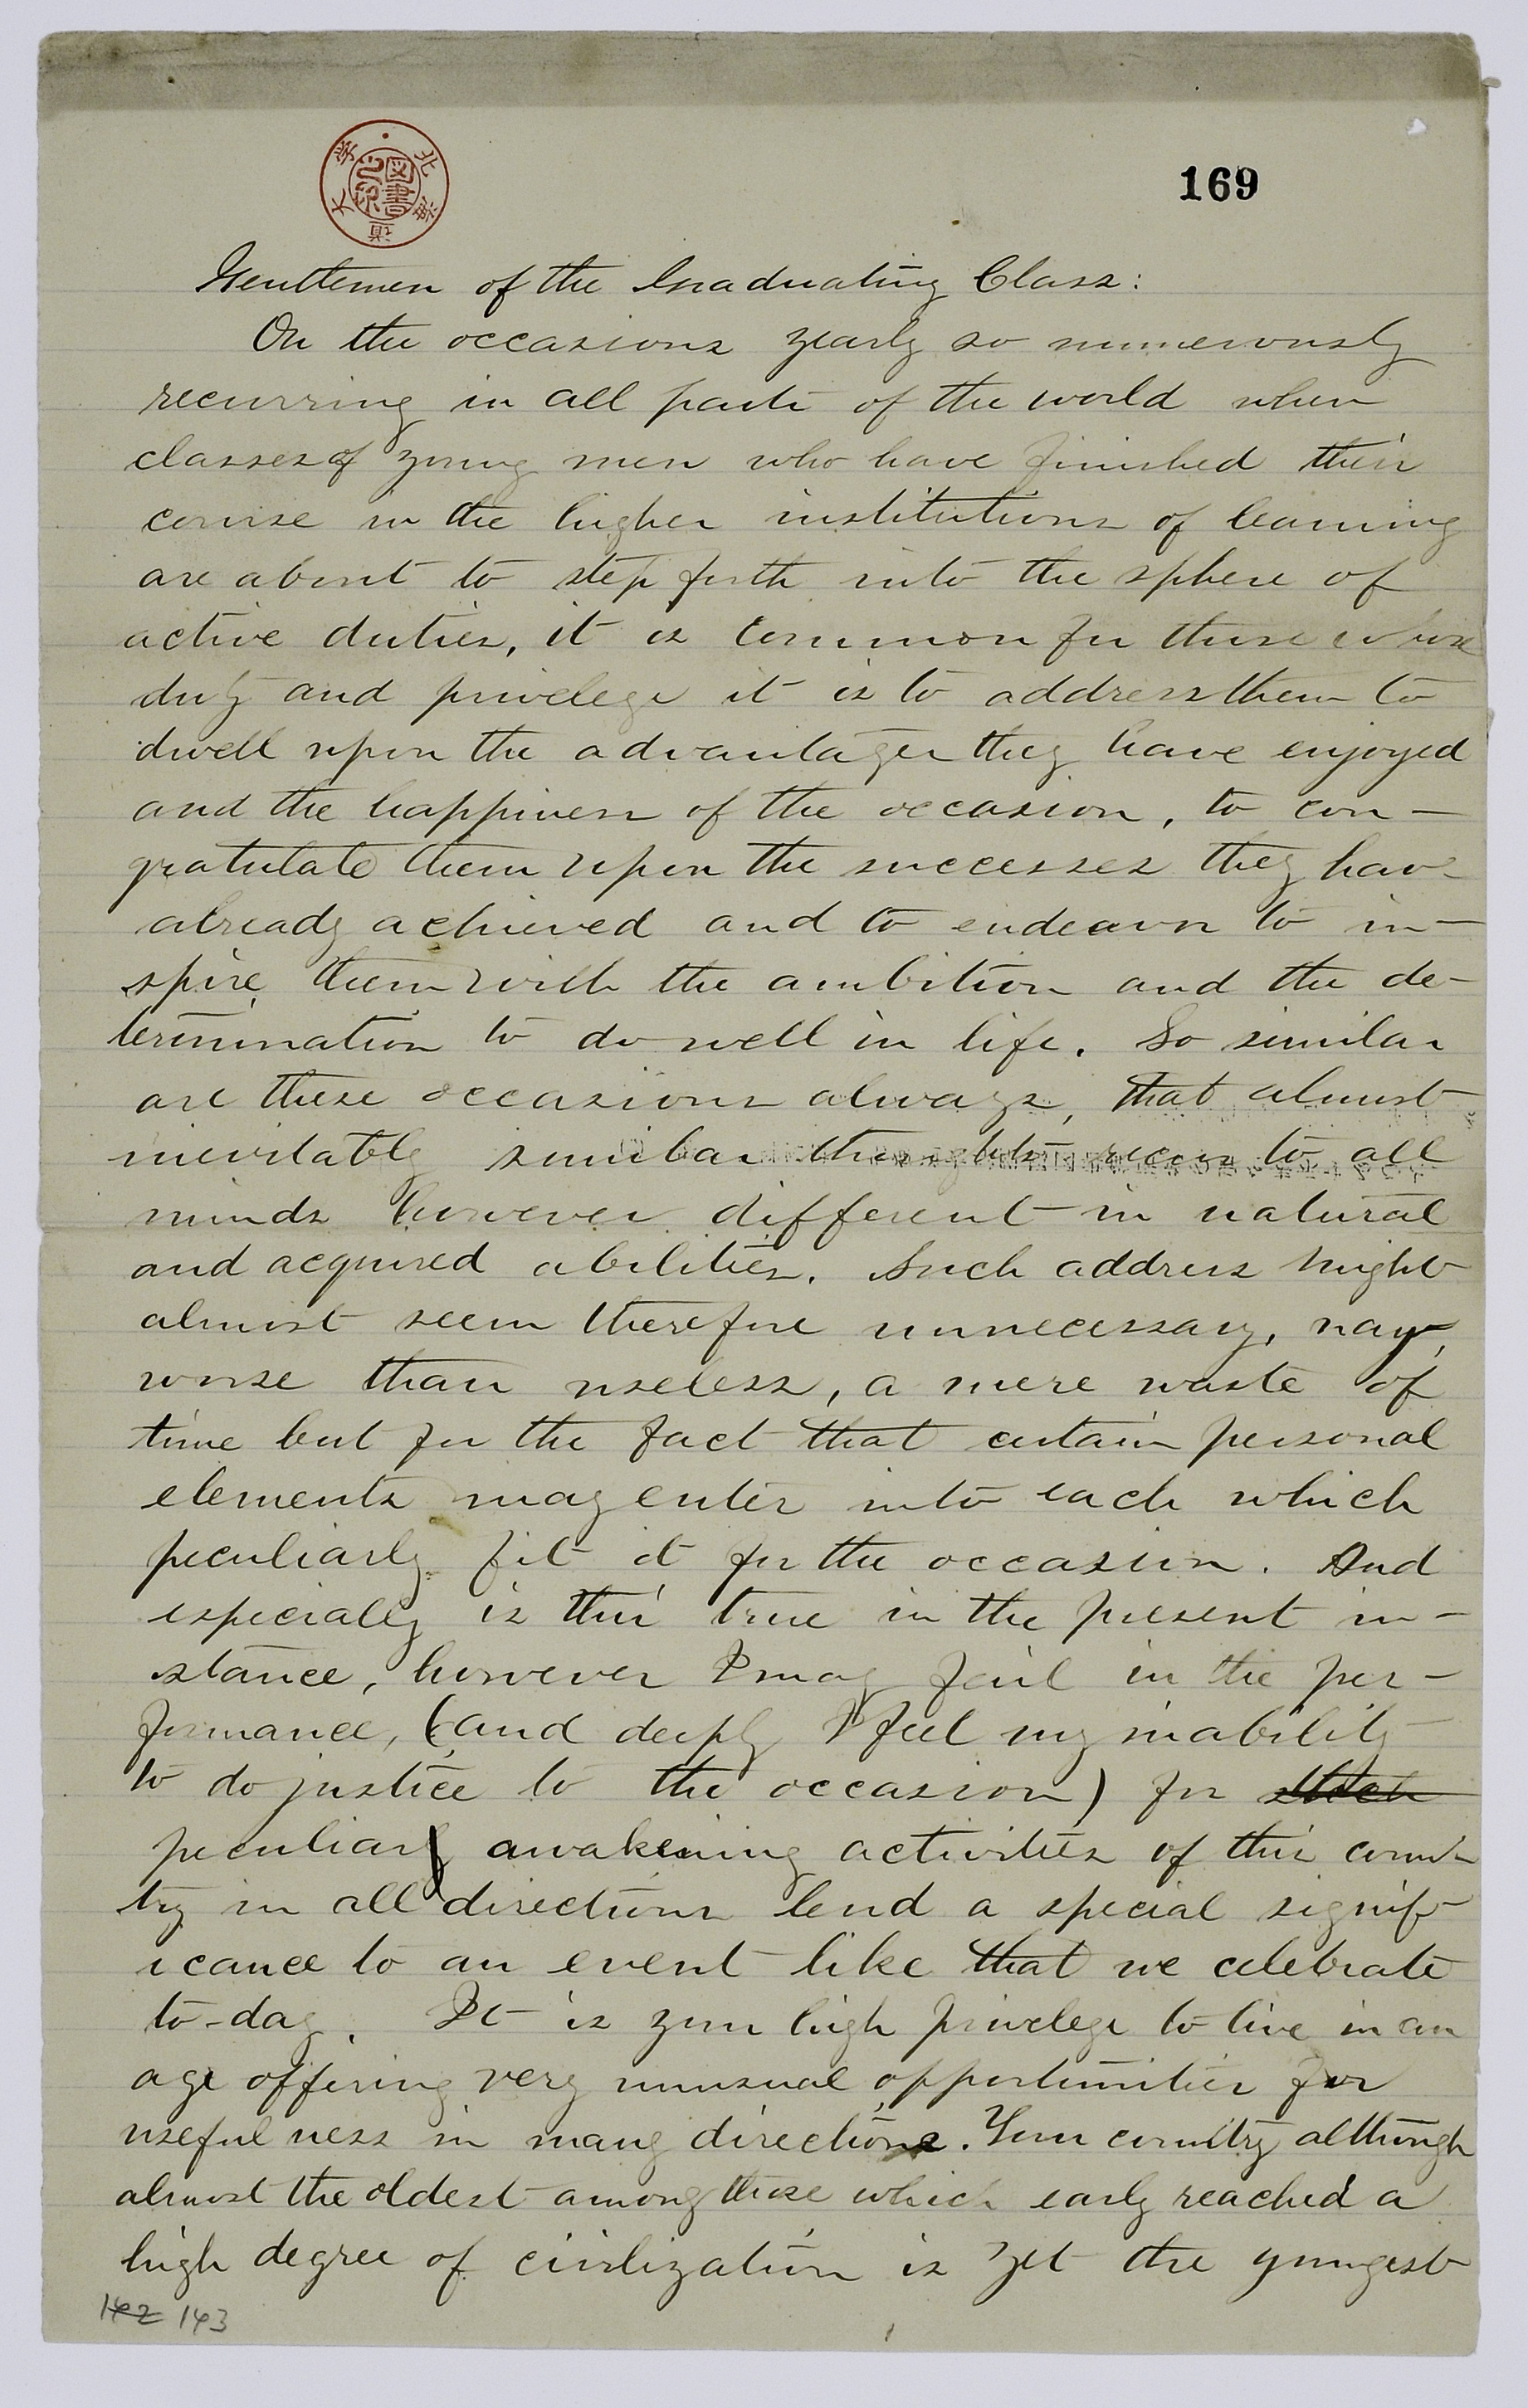 北海道大学図書之印
169
Gentlemen of the Graduating Class:
On the occasions yearly so numerously
recurring in all parts of the world when
classes of young men who have finished their
course in the higher institutions of learning
are about to step forth into the sphere of
active duties, it is common for those whose
duty and privelege it is to address them to
dwell upon the advantages they have enjoyed
and the happiness of the occasion, to con-
gratulate them upon the successes they have
already achieved and to endeavor to in-
spire them with the ambition and the de-
termination to do well in life. So similar
are these occasions always, that almost
inevitably similar thoughts occur to all
minds however different in natural
and acquired abilities. Such address might
almost seem therefore unnecessary, nay,
worse than useless, a mere waste of
time but for the fact that certain personal
elements may enter into each which
peculiarly fit it for the occasion. And
especially is this true in the present in-
stance, however I may fail in the per-
formance, (and deeply I feel my inability
to do justice to the occasion) for
peculiar awakening activities of this coun-
try in all directions lend a special signif-
icance to an event like that we celebrate
to-day. It is your high privelege to live in an
age offering very unusual opportunities for
usefulness in many directions. Your country although
almost the oldest among those which early reached a
high degree of civilization is yet the youngest
142 143